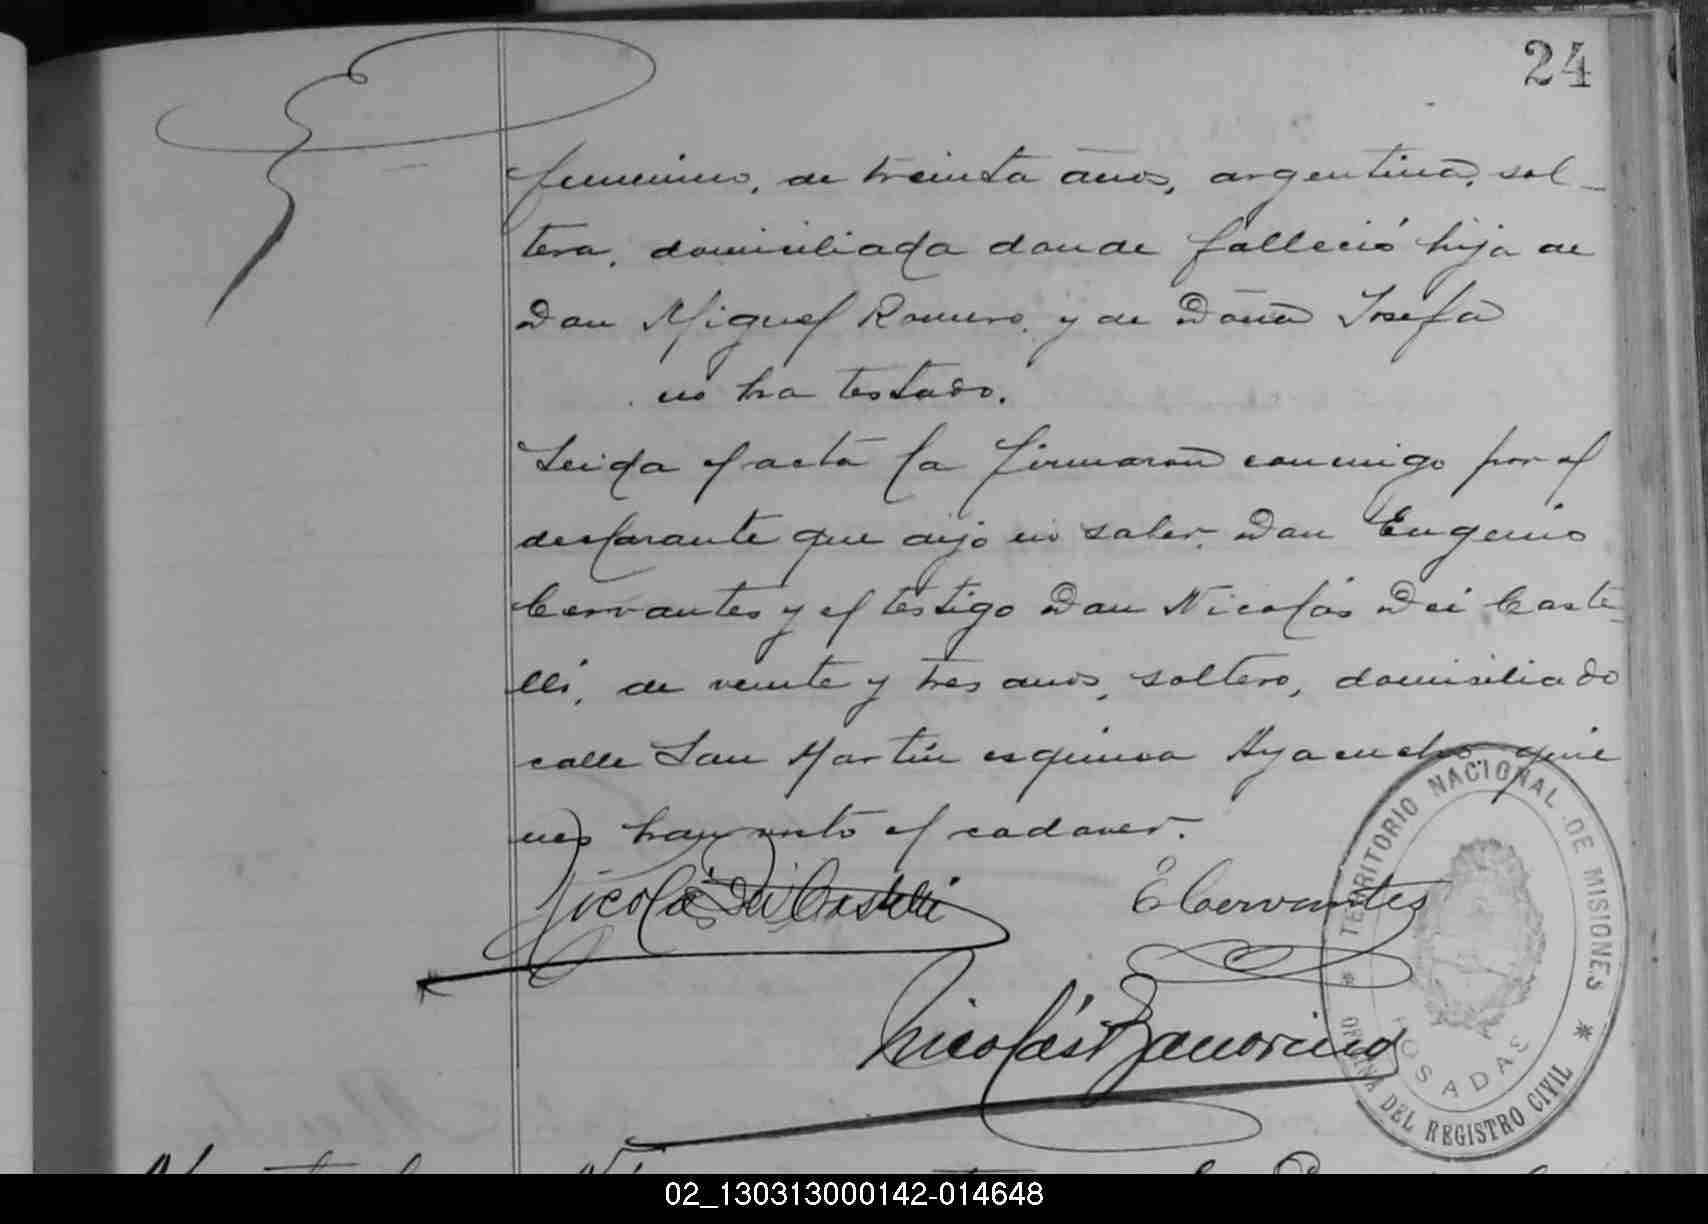 24
femenino, de treinta años, argentina, sol-
tera, domiciliada donde falleció hija de
Don Miguel Romero, y de Doña Josefa
no ha testado.
Leida el acta la firmaron conmigo por el
declarante que dijo no saber Don Eugenio
Cervantes y el testigo Don Nicolás Dei Caste
lli, de veinte y tres años, soltero, domiciliado
calle San Martín esquina Ayacucho quie
nes han visto el cadaver.
Nicolás Dei Castelli
E Cervantes
Nicolás
TERRITORIO NACIONAL DE MISIONES
OFICINA DEL REGISTRO CIVIL
POSADAS
02_130313000142-014648